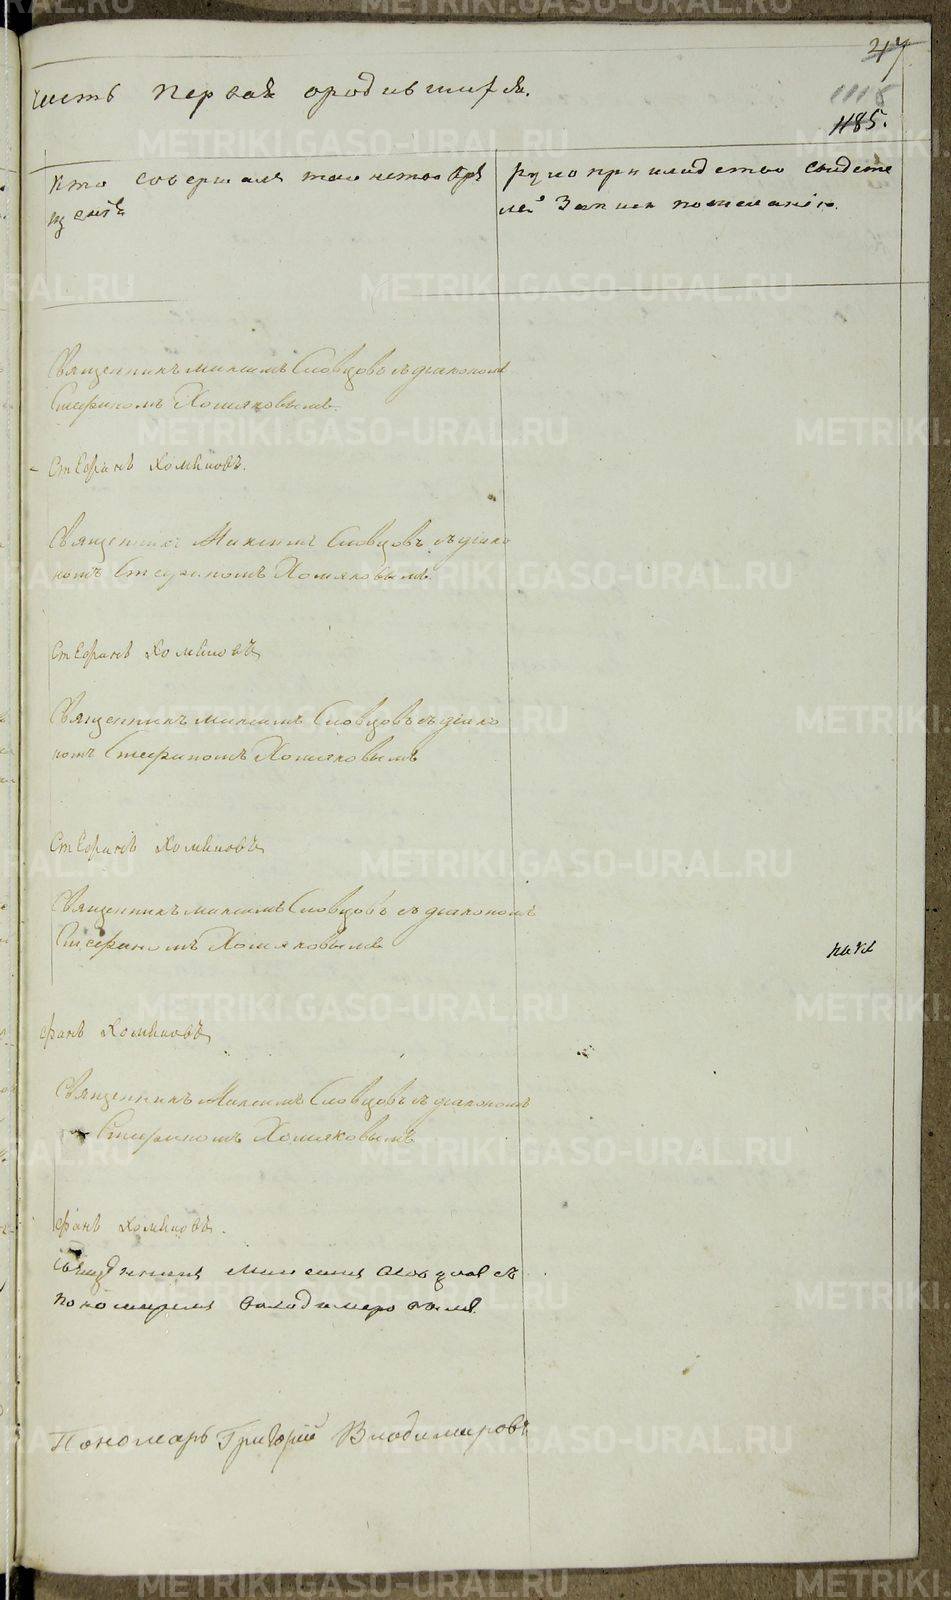 47
1116
1185.
часть первая ородившихся.
кто совершалъ таинство кре
щенiя
рукоприкладство свидете
лей записи пожеланiю.
Священникъ Максимъ Словцовъ съ дiакономъ
Стефаномъ Хомяковымъ.
Стефанъ Хомяковъ.
Священникъ Максимъ Словцовъ съ дiако
номъ Стефаномъ Хомяковымъ
Стефанъ Хомяковъ
Священникъ Максимъ Словцовъ съ дiако
номъ Стефаномъ Хомяковымъ
Стефанъ Хомяковъ
Священникъ Максимъ Словцовъ съ дiакономъ
Стефаномъ Хомяковымъ
фанъ Хомяковъ
Священникъ Максимъ Словцовъ съ дiакономъ
Стефаномъ Хомяковымъ
фанъ Хомяковъ.
Священникъ Максимъ Словцовъ съ
пономаремъ Владимеровымъ
Пономарь Григорiй Владимировъ
METRIKI.GASO-URAL.RU